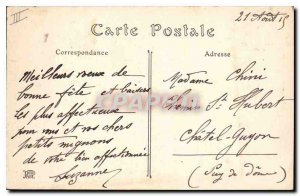 III
21 Août 15
Carte Postale
Correspondance
Adresse
Meilleurs vœux de
bonne fête et baisers
les plus affectueux
pour vous et vos chers
petits mignons
de votre bien affectionnée
Suzanne
Madame Chini
St Hubert
Châtel-Guyon
(Puy de dôme)